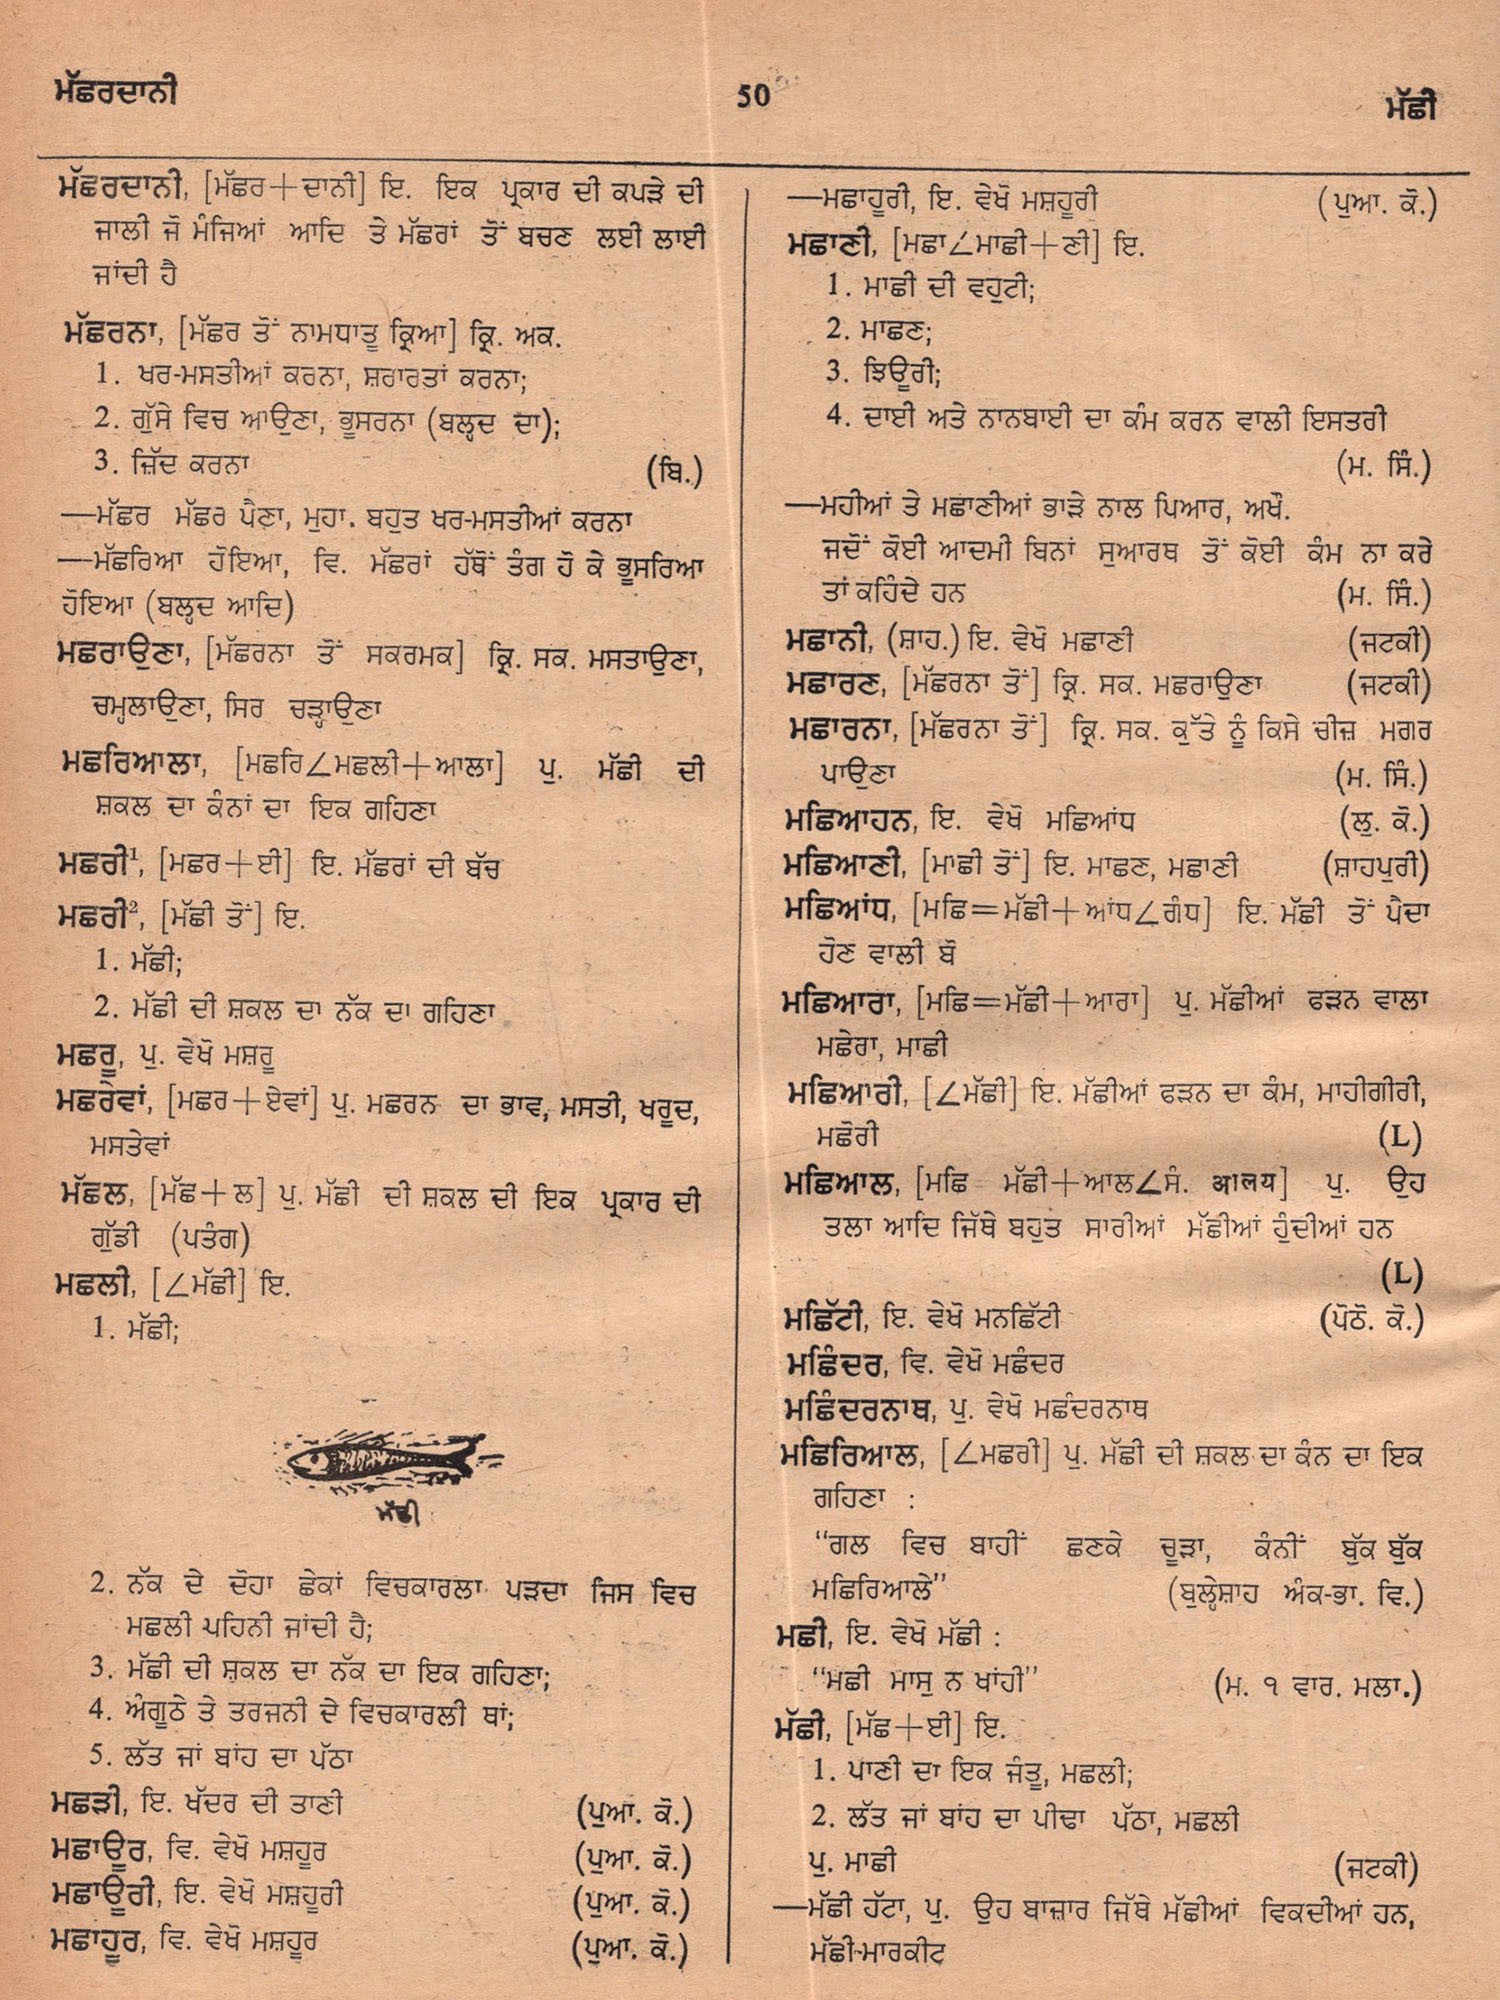 ਮੱਛਰਦਾਨੀ
50
ਮੱਛੀ
ਮੱਛਰਦਾਨੀ, [ਮੱਛਰ+ਦਾਨੀ] ਇ. ਇਕ ਪ੍ਰਕਾਰ ਦੀ ਕਪੜੇ ਦੀ
ਜਾਲੀ ਜੋ ਮੰਜਿਆਂ ਆਦਿ ਤੇ ਮੱਛਰਾਂ ਤੋਂ ਬਚਣ ਲਈ ਲਾਈ
ਜਾਂਦੀ ਹੈ
ਮੱਛਰਨਾ, [ਮੱਛਰ ਤੋਂ ਨਾਮਧਾਤੂ ਕ੍ਰਿਆ] ਕ੍ਰਿ. ਅਕ.
1. ਖਰ-ਮਸਤੀਆਂ ਕਰਨਾ, ਸ਼ਰਾਰਤਾਂ ਕਰਨਾ;
2. ਗੁੱਸੇ ਵਿਚ ਆਉਣਾ, ਭੂਸਰਨਾ (ਬਲ੍ਹਦ ਦਾ);
3. ਜ਼ਿੱਦ ਕਰਨਾ (ਬਿ.)
—ਮੱਛਰ ਮੱਛਰ ਪੈਣਾ, ਮੁਹਾ. ਬਹੁਤ ਖਰ-ਮਸਤੀਆਂ ਕਰਨਾ
—ਮੱਛਰਿਆ ਹੋਇਆ, ਵਿ. ਮੱਛਰਾਂ ਹੱਥੋਂ ਤੰਗ ਹੋ ਕੇ ਭੂਸਰਿਆ
ਹੋਇਆ (ਬਲ੍ਹਦ ਆਦਿ)
ਮਛਰਾਉਣਾ, [ਮੱਛਰਨਾ ਤੋਂ ਸਕਰਮਕ] ਕ੍ਰਿ. ਸਕ. ਮਸਤਾਉਣਾ,
ਚਮ੍ਹਲਾਉਣਾ, ਸਿਰ ਚੜ੍ਹਾਉਣਾ
ਮਛਰਿਆਲਾ, [ਮਛਰਿ∠ਮਛਲੀ+ਆਲਾ] ਪੁ. ਮੱਛੀ ਦੀ
ਸ਼ਕਲ ਦਾ ਕੰਨਾਂ ਦਾ ਇਕ ਗਹਿਣਾ
ਮਛਰੀ¹, [ਮਛਰ+ਈ] ਇ. ਮੱਛਰਾਂ ਦੀ ਬੱਚ
ਮਛਰੀ², [ਮੱਛੀ ਤੋਂ] ਇ.
1. ਮੱਛੀ;
2. ਮੱਛੀ ਦੀ ਸ਼ਕਲ ਦਾ ਨੱਕ ਦਾ ਗਹਿਣਾ
ਮਛਰੂ, ਪੁ. ਵੇਖੋ ਮਸ਼ਰੂ
ਮਛਰੇਵਾਂ, [ਮਛਰ+ਏਵਾਂ] ਪੁ. ਮਛਰਨ ਦਾ ਭਾਵ, ਮਸਤੀ, ਖਰੂਦ,
ਮਸਤੇਵਾਂ
ਮੱਛਲ, [ਮੱਛ+ਲ] ਪੁ. ਮੱਛੀ ਦੀ ਸ਼ਕਲ ਦੀ ਇਕ ਪ੍ਰਕਾਰ ਦੀ
ਗੁੱਡੀ (ਪਤੰਗ)
ਮਛਲੀ, [∠ਮੱਛੀ] ਇ.
1. ਮੱਛੀ;
ਮੱਛੀ
2. ਨੱਕ ਦੇ ਦੋਹਾ ਛੇਕਾਂ ਵਿਚਕਾਰਲਾ ਪੜਦਾ ਜਿਸ ਵਿਚ
ਮਛਲੀ ਪਹਿਨੀ ਜਾਂਦੀ ਹੈ;
3. ਮੱਛੀ ਦੀ ਸ਼ਕਲ ਦਾ ਨੱਕ ਦਾ ਇਕ ਗਹਿਣਾ;
4. ਅੰਗੂਠੇ ਤੇ ਤਰਜਨੀ ਦੇ ਵਿਚਕਾਰਲੀ ਥਾਂ;
5. ਲੱਤ ਜਾਂ ਬਾਂਹ ਦਾ ਪੱਠਾ
ਮਛੜੀ, ਇ. ਖੱਦਰ ਦੀ ਤਾਣੀ (ਪੁਆ. ਕੋ.)
ਮਛਾਊਰ, ਵਿ. ਵੇਖੋ ਮਸ਼ਹੂਰ (ਪੁਆ. ਕੋ.)
ਮਛਾਊਰੀ, ਇ. ਵੇਖੋ ਮਸ਼ਹੂਰੀ (ਪੁਆ. ਕੋ.)
ਮਛਾਹੂਰ, ਵਿ. ਵੇਖੋ ਮਸ਼ਹੂਰ (ਪੁਆ. ਕੋ.)
—ਮਛਾਹੂਰੀ, ਇ. ਵੇਖੋ ਮਸ਼ਹੂਰੀ (ਪੁਆ. ਕੋ.)
ਮਛਾਣੀ, [ਮਛਾ∠ਮਾਛੀ+ਣੀ] ਇ.
1. ਮਾਛੀ ਦੀ ਵਹੁਟੀ;
2. ਮਾਛਣ;
3. ਝਿਊਰੀ;
4. ਦਾਈ ਅਤੇ ਨਾਨਬਾਈ ਦਾ ਕੰਮ ਕਰਨ ਵਾਲੀ ਇਸਤਰੀ
(ਮ. ਸਿੰ.)
—ਮਹੀਆਂ ਤੇ ਮਛਾਣੀਆਂ ਭਾੜੇ ਨਾਲ ਪਿਆਰ, ਅਖੌ.
ਜਦੋਂ ਕੋਈ ਆਦਮੀ ਬਿਨਾਂ ਸੁਆਰਥ ਤੋਂ ਕੋਈ ਕੰਮ ਨਾ ਕਰੇ
ਤਾਂ ਕਹਿੰਦੇ ਹਨ (ਮ. ਸਿੰ.)
ਮਛਾਨੀ, (ਸ਼ਾਹ.) ਇ. ਵੇਖੋ ਮਛਾਣੀ (ਜਟਕੀ)
ਮਛਾਰਣ, [ਮੱਛਰਨਾ ਤੋਂ] ਕ੍ਰਿ. ਸਕ. ਮਛਰਾਉਣਾ (ਜਟਕੀ)
ਮਛਾਰਨਾ, [ਮੱਛਰਨਾ ਤੋਂ] ਕ੍ਰਿ. ਸਕ. ਕੁੱਤੇ ਨੂੰ ਕਿਸੇ ਚੀਜ਼ ਮਗਰ
ਪਾਉਣਾ (ਮ. ਸਿੰ.)
ਮਛਿਆਹਨ, ਇ. ਵੇਖੋ ਮਛਿਆਂਧ (ਲੁ. ਕੋ.)
ਮਛਿਆਣੀ, [ਮਾਛੀ ਤੋਂ] ਇ. ਮਾਛਣ, ਮਛਾਣੀ (ਸ਼ਾਹਪੁਰੀ)
ਮਛਿਆਂਧ, [ਮਛਿ=ਮੱਛੀ+ਆਂਧ∠ਗੰਧ] ਇ. ਮੱਛੀ ਤੋਂ ਪੈਦਾ
ਹੋਣ ਵਾਲੀ ਬੋ
ਮਛਿਆਰਾ, [ਮਛਿ=ਮੱਛੀ+ਆਰਾ] ਪੁ. ਮੱਛੀਆਂ ਫੜਨ ਵਾਲਾ
ਮਛੇਰਾ, ਮਾਛੀ
ਮਛਿਆਰੀ, [∠ਮੱਛੀ] ਇ. ਮੱਛੀਆਂ ਫੜਨ ਦਾ ਕੰਮ, ਮਾਹੀਗੀਰੀ,
ਮਛੋਰੀ (L)
ਮਛਿਆਲ, [ਮਛਿ ਮੱਛੀ+ਆਲ∠ਸੰ. आलय] ਪੁ. ਉਹ
ਤਲਾ ਆਦਿ ਜਿੱਥੇ ਬਹੁਤ ਸਾਰੀਆਂ ਮੱਛੀਆਂ ਹੁੰਦੀਆਂ ਹਨ
(L)
ਮਛਿੱਟੀ, ਇ. ਵੇਖੋ ਮਨਛਿੱਟੀ (ਪੋਠੋ. ਕੋ.)
ਮਛਿੰਦਰ, ਵਿ. ਵੇਖੋ ਮਛੰਦਰ
ਮਛਿੰਦਰਨਾਥ, ਪੁ. ਵੇਖੋ ਮਛੰਦਰਨਾਥ
ਮਛਿਰਿਆਲ, [∠ਮਛਰੀ] ਪੁ. ਮੱਛੀ ਦੀ ਸ਼ਕਲ ਦਾ ਕੰਨ ਦਾ ਇਕ
ਗਹਿਣਾ :
“ਗਲ ਵਿਚ ਬਾਹੀਂ ਛਣਕੇ ਚੂੜਾ, ਕੰਨੀਂ ਬੁੱਕ ਬੁੱਕ
ਮਛਿਰਿਆਲੇ” (ਬੁਲ੍ਹੇਸ਼ਾਹ ਅੰਕ-ਭਾ. ਵਿ.)
ਮਛੀ, ਇ. ਵੇਖੋ ਮੱਛੀ :
“ਮਛੀ ਮਾਸੁ ਨ ਖਾਂਹੀ” (ਮ. ੧ ਵਾਰ. ਮਲਾ.)
ਮੱਛੀ, [ਮੱਛ+ਈ] ਇ.
1. ਪਾਣੀ ਦਾ ਇਕ ਜੰਤੂ, ਮਛਲੀ;
2. ਲੱਤ ਜਾਂ ਬਾਂਹ ਦਾ ਪੀਢਾ ਪੱਠਾ, ਮਛਲੀ
ਪੁ. ਮਾਛੀ (ਜਟਕੀ)
—ਮੱਛੀ ਹੱਟਾ, ਪੁ. ਉਹ ਬਾਜ਼ਾਰ ਜਿੱਥੇ ਮੱਛੀਆਂ ਵਿਕਦੀਆਂ ਹਨ,
ਮੱਛੀ-ਮਾਰਕੀਟ